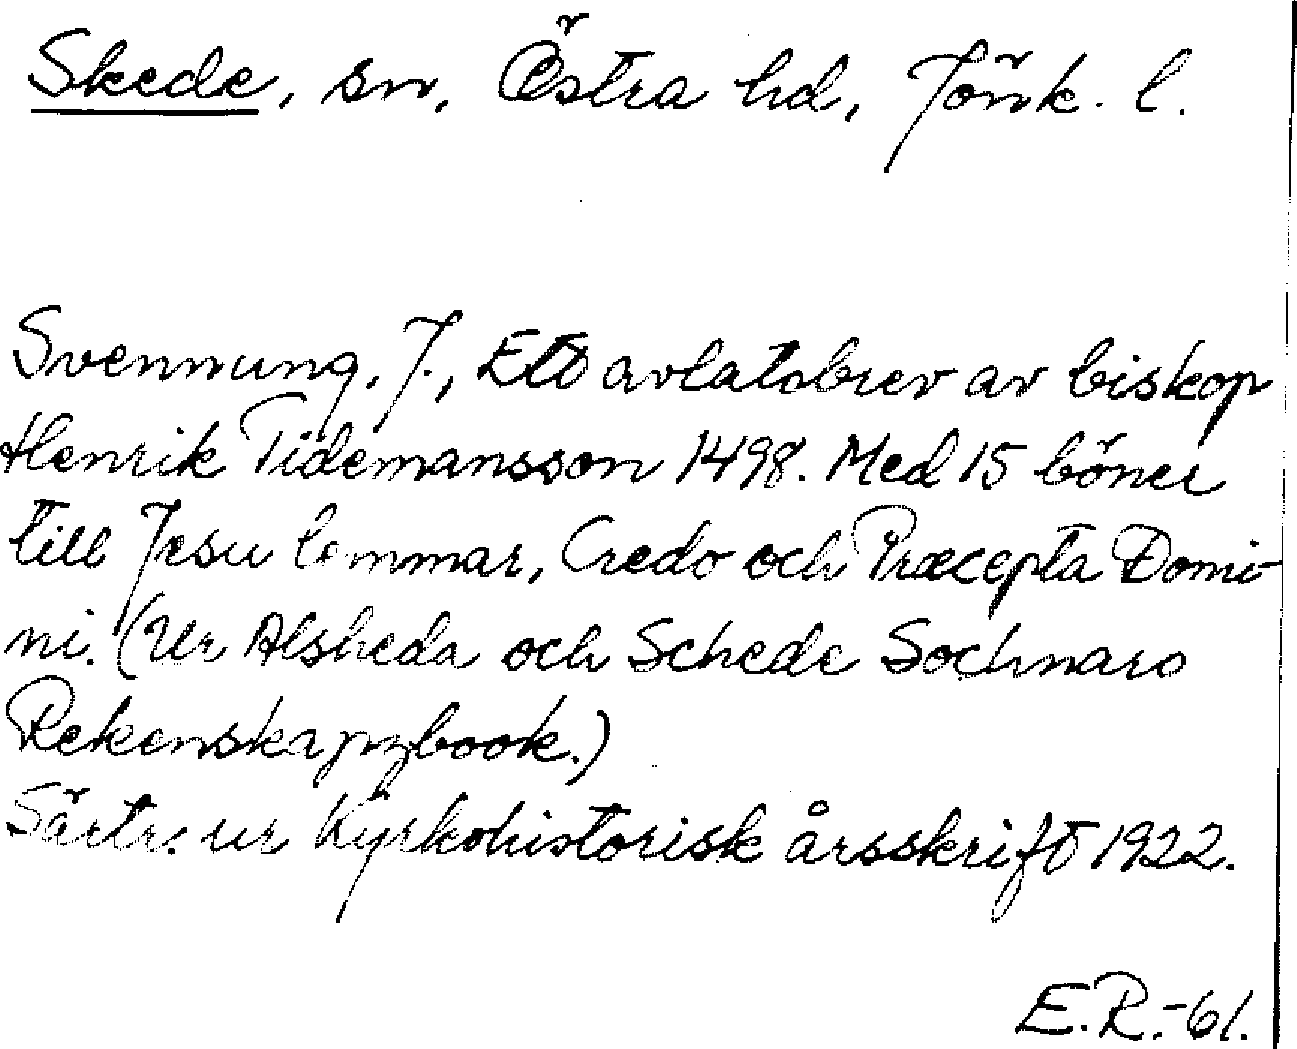 Skede, sn, Östra hd, Jönk. l.
Svennung, J., Ett avlatsbrev av biskop
Henrik Tidemansson 1498. Med 15 böner
till Jesu lemmar, Credo och Præcepta Domi-
ni. (Ur Alsheda och Schede Sochnars
Rekenskapzbook.)
Särtr. ur Kyrkohistorisk årsskrift 1922.
E.R.-61.